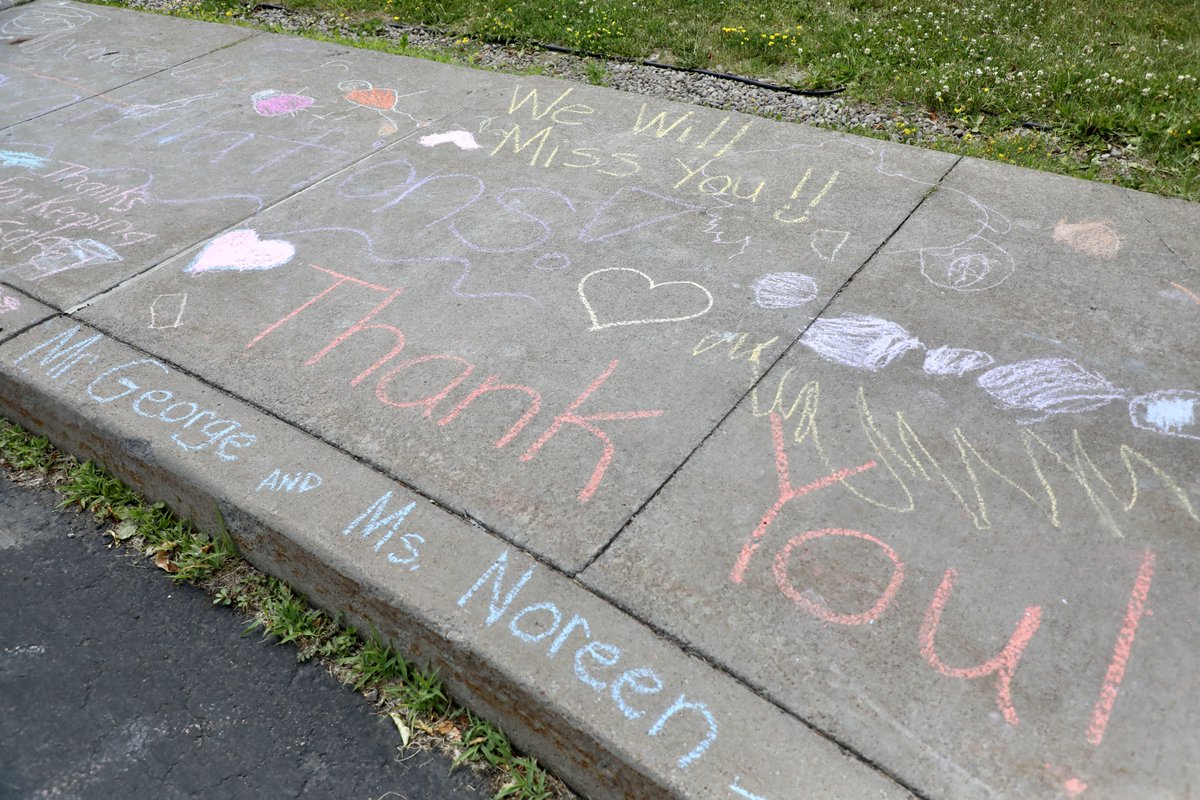 We Will
Miss You!!
Thanks
for Keeping
Safe
Thank You!
Mr. George AND Ms. Noreen